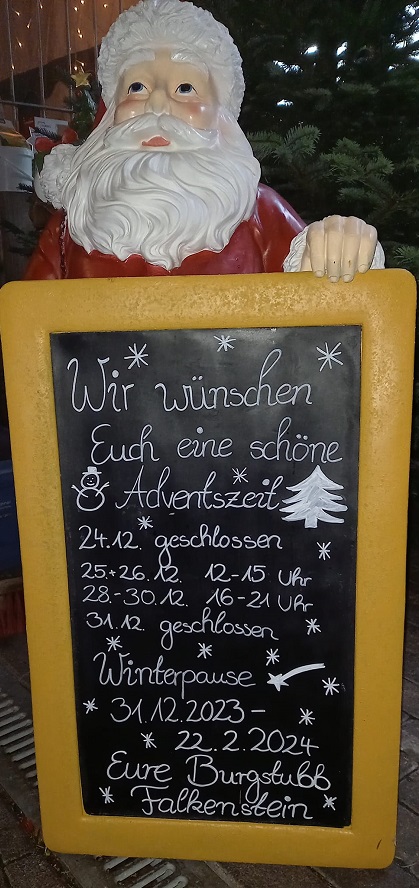 Wir wünschen
Euch eine schöne
Adventszeit
24.12. geschlossen
25.+26.12. 12-15 Uhr
28.-30.12. 16-21 Uhr
31.12. geschlossen
Winterpause
31.12.2023-
22.2.2024
Eure Burgstubb
Falkenstein